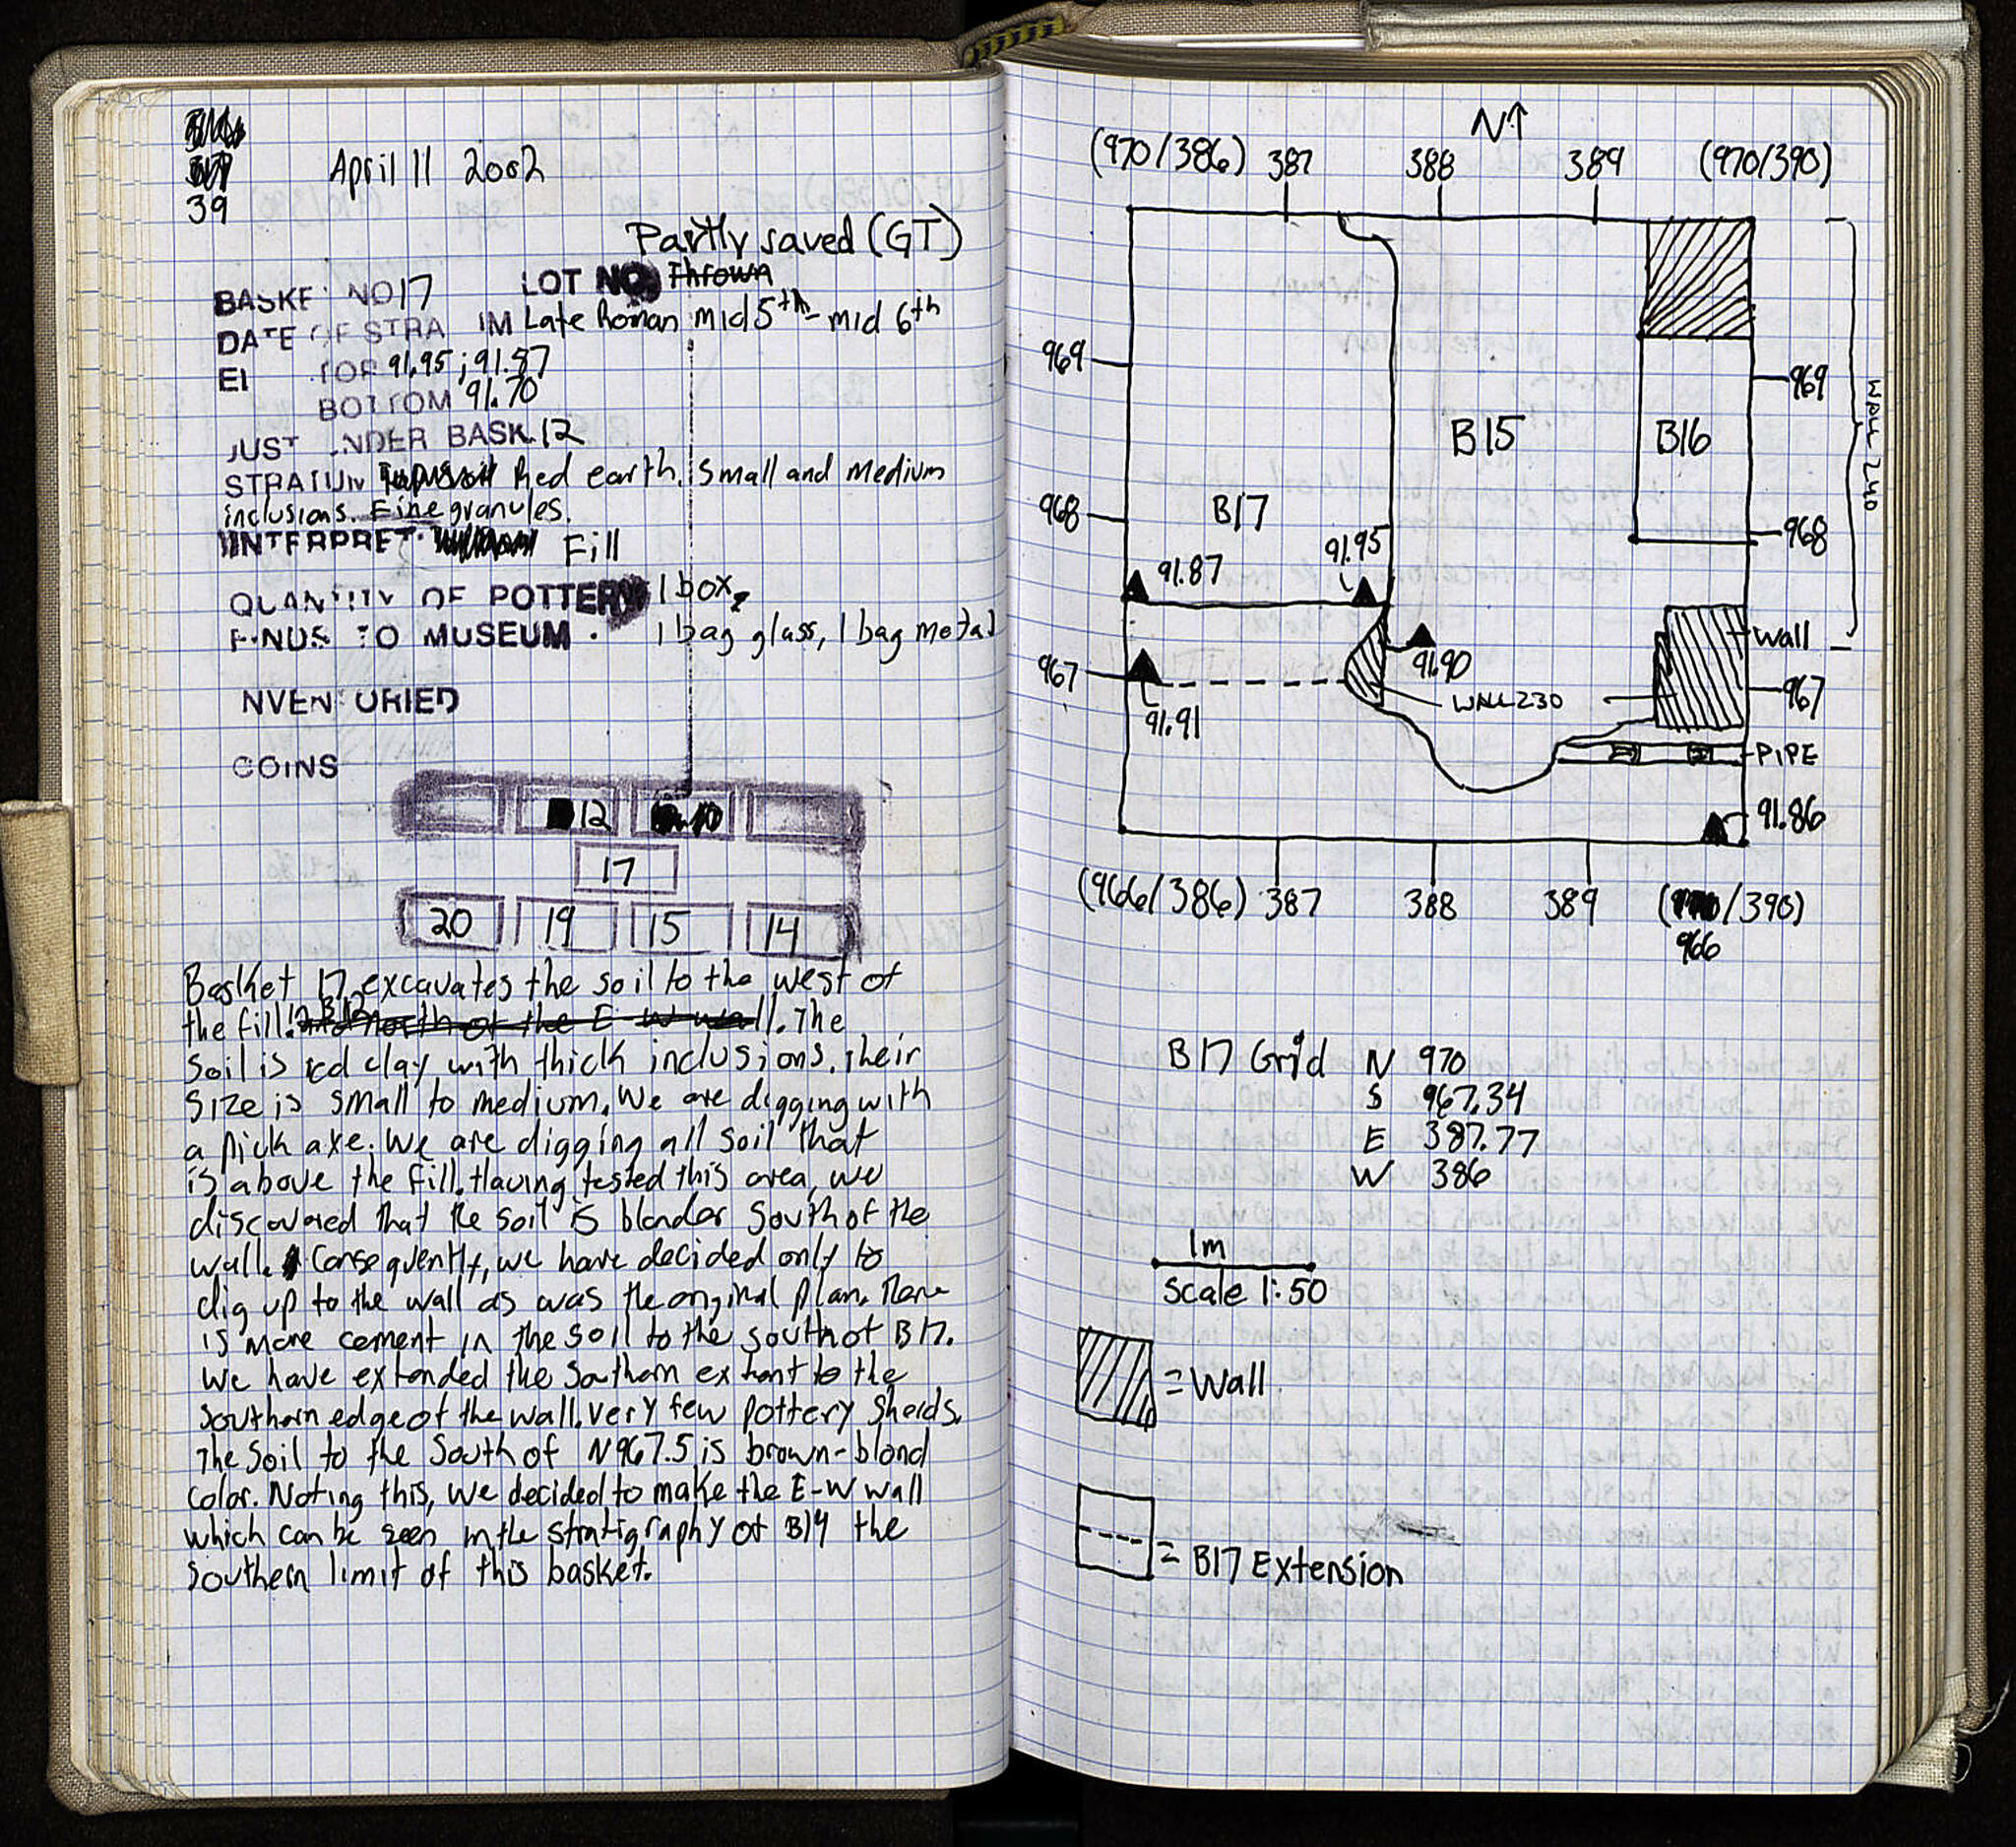 39
April 11 2002
Partly saved (GT)
BASKE NO 17 LOT NO. Thrown
DATE OF STRA IM Late Roman mid 5th - mid 6th
El TOP 91.95; 91.87
BOTTOM 91.70
JUST NDER BASK. 12
STRATUM Red earth. Small and medium
inclusions. Fine granules.
INTERPRET. Fill
QUANTITY OF POTTERY 1 box.
FINDS TO MUSEUM. 1 bag glass, 1 bag metal
NVEN ORIED
COINS
12
17
20 19 15 14
Basket 17 excavates the soil to the west of
the fill. and north of the E-W wall. The
soil is red clay with thick inclusions. Their
size is small to medium. We are digging with
a pick axe. We are digging all soil that
is above the fill. Having tested this area, we
discovered that the soil is blonder south of the
wall. Consequently, we have decided only to
dig up to the wall as was the original plan. There
is more cement in the soil to the south of B17.
We have extended the southern extent to the
southern edge of the wall. Very few pottery sherds.
The soil to the south of N967.5 is brown-blond
color. Noting this, we decided to make the E-W wall
which can be seen in the stratigraphy of B14 the
southern limit of this basket.
N↑
(970/386) 387 388 389 (970/390)
969
969
Wall 240
B15
B16
968
B17
968
91.87
91.95
Wall
967
91.90
967
WALL 230
91.91
PIPE
91.86
(966/386) 387 388 389 ( /390)
966
B17 Grid N 970
S 967.34
E 387.77
W 386
1m
Scale 1:50
= Wall
= B17 Extension